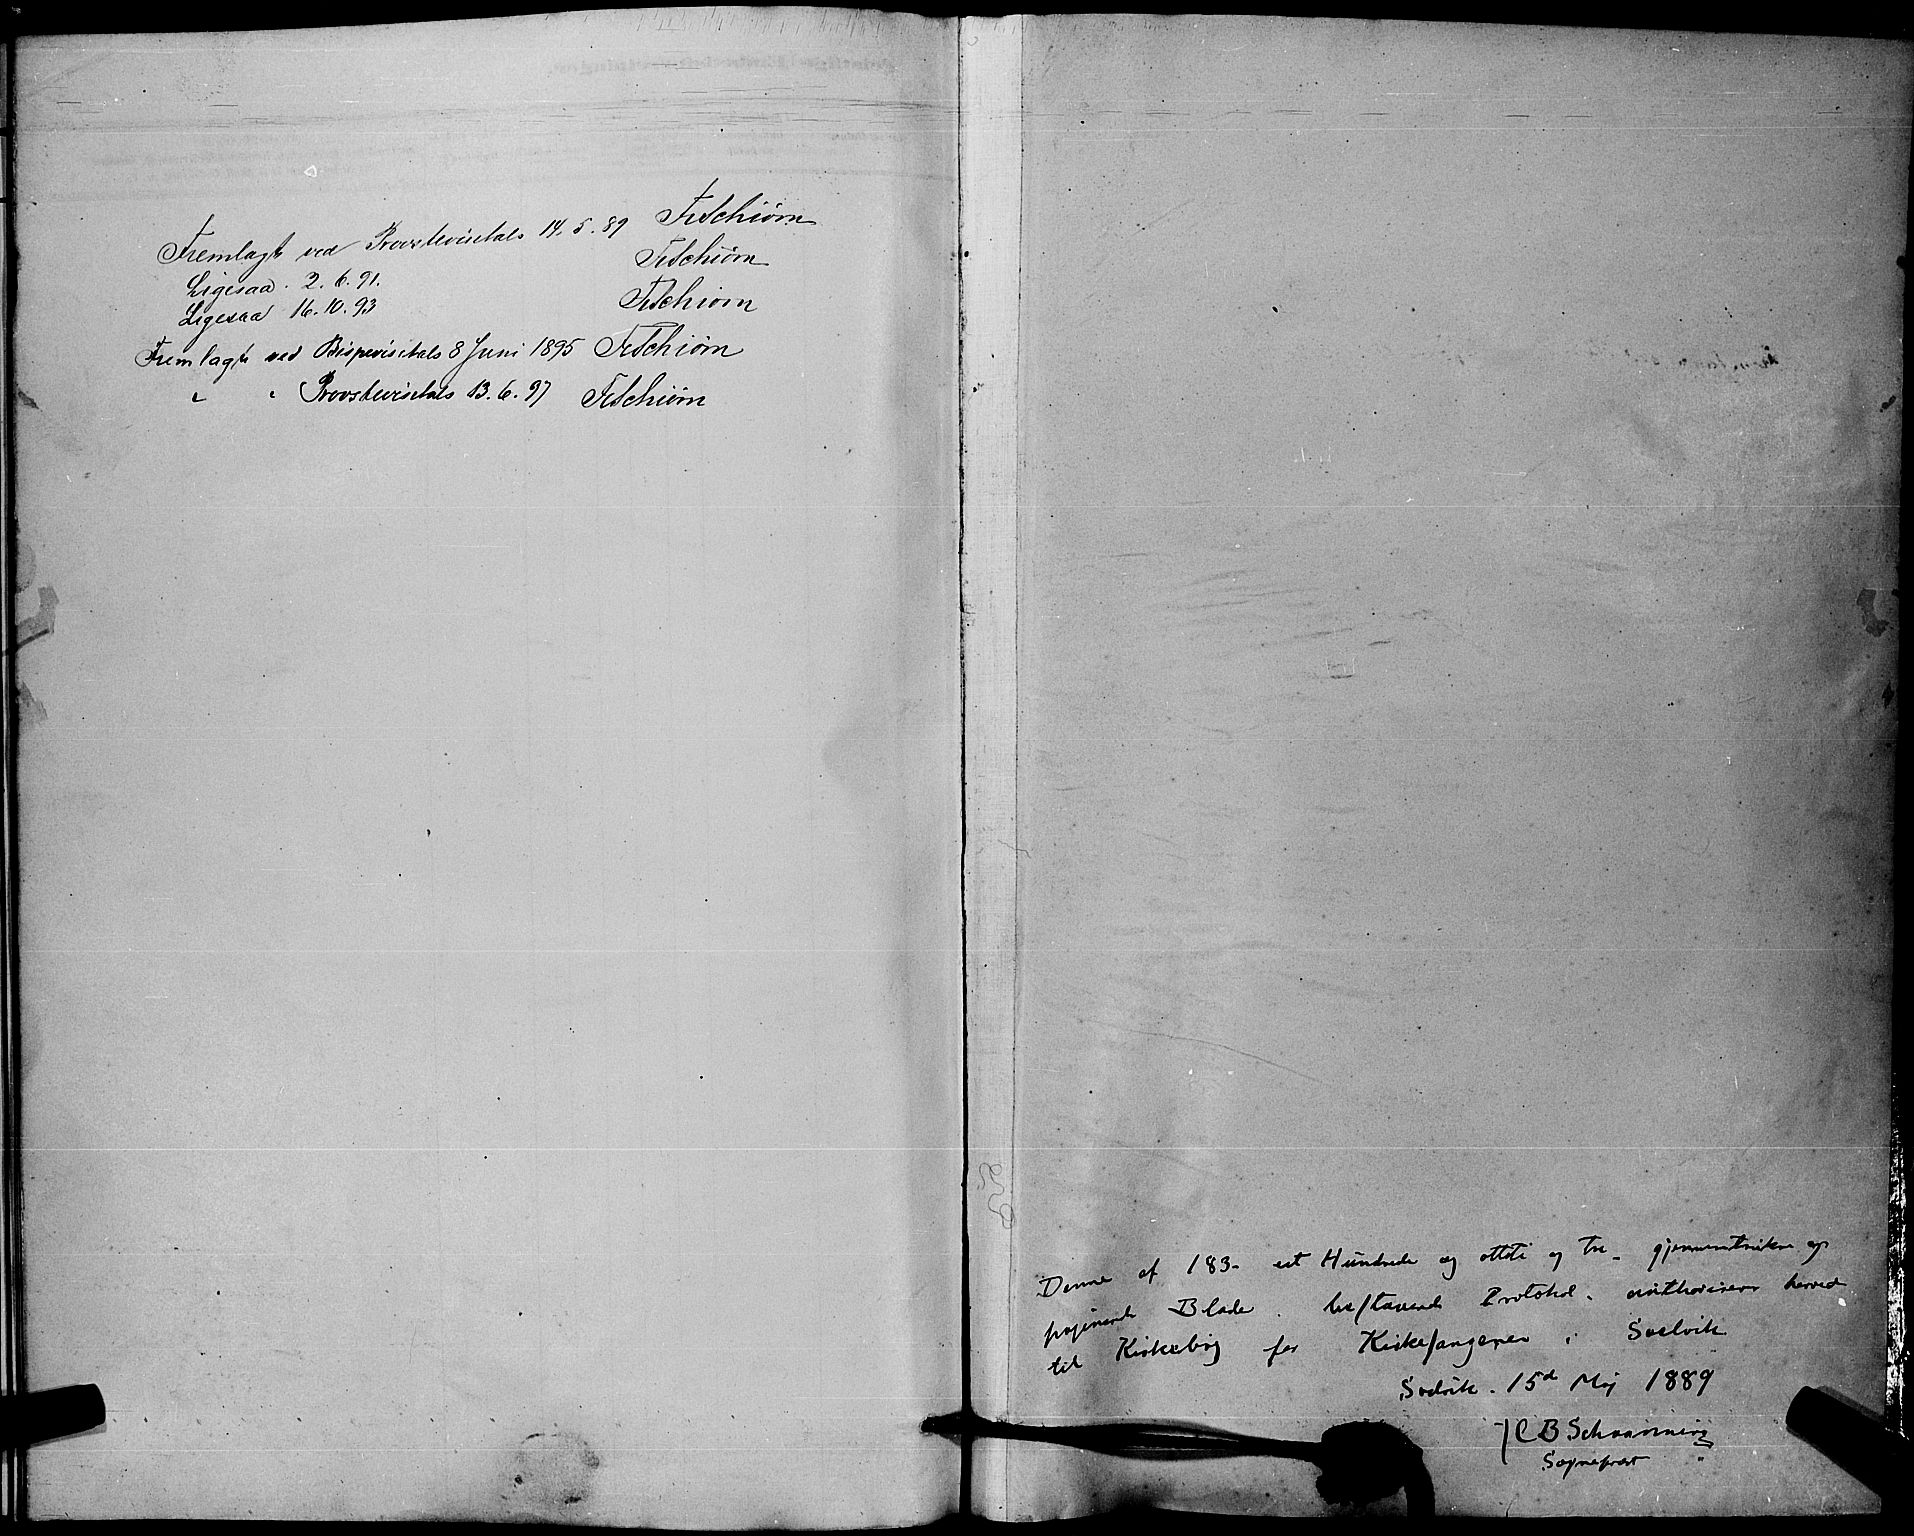 Fremlagt ved Provstevisitats 14.5.89 FrSchiørn
Ligesaa. 2.6.91. FrSchiørn
Ligesaa 16.10.93 FrSchiørn
Fremlagt ved Bispevisitats 8 Juni 1895 FrSchiørn
" " Provstevisitats 13.6.97 FrSchiørn
Denne af 183 - et Hundrede og otteti og tre - gjennemtrukne og
paginerede Blade bestaaende Protokol authoriseres herved
til Kirkebog for Kirkesangeren i Svelvik
Svelvik. 15d Maj 1889
HCB Schaanning
Sognepræst